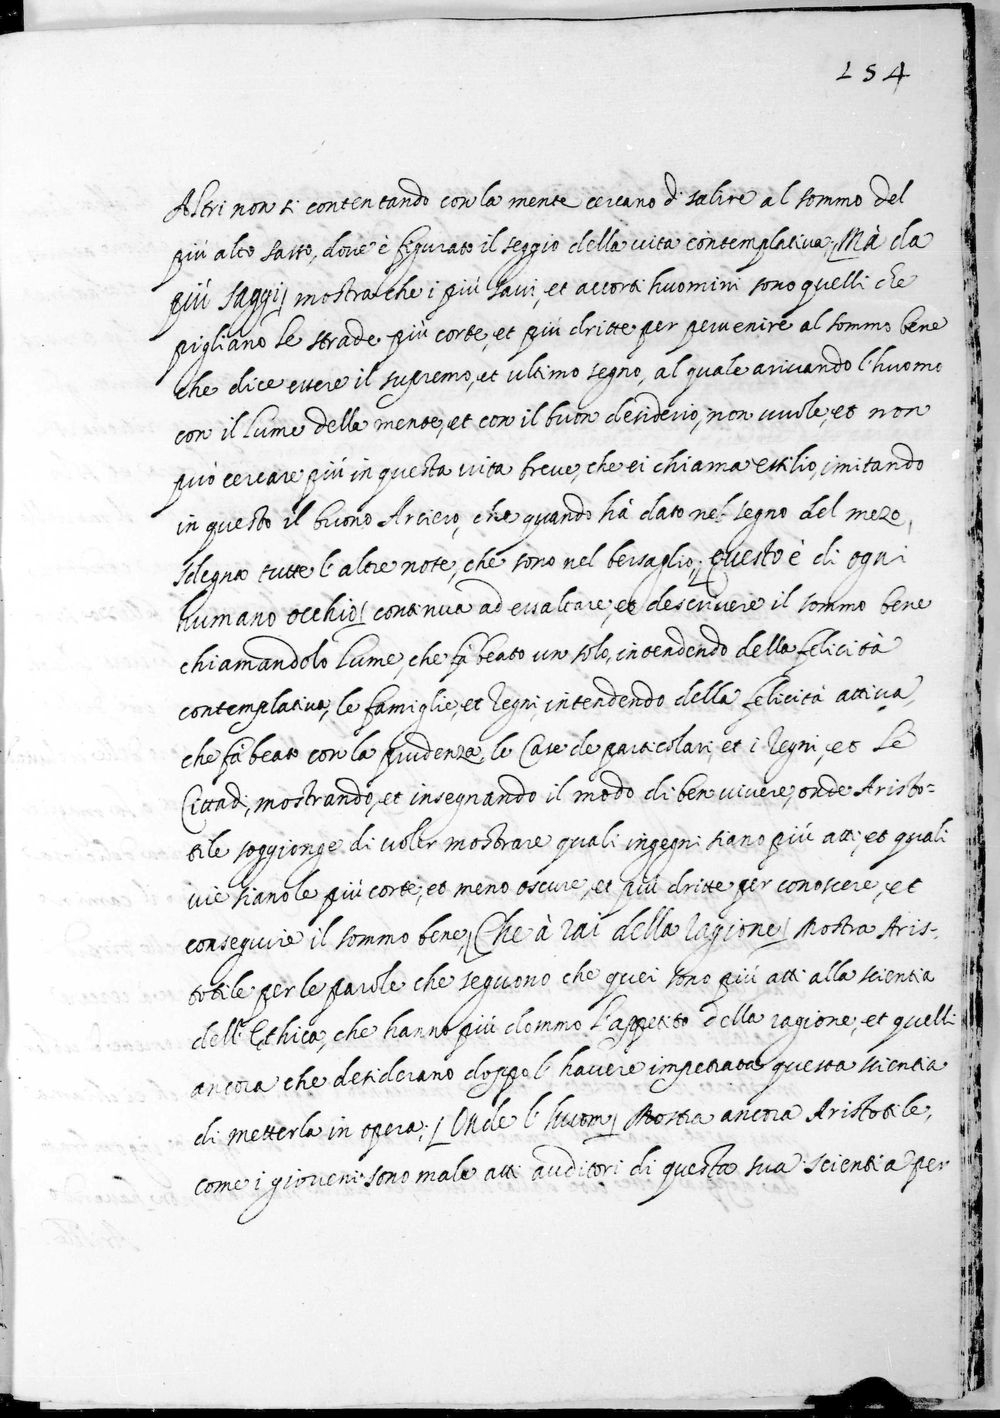 154
Altri non si contentando con la mente cercano di salire al sommo del
più alto sasso, dove è figurato il seggio della vita contemplativa, Mà da
più saggi, mostra che i più savi, et accorti huomini sono quelli che
pigliano le strade più corte, et più dritte per pervenire al sommo bene
che dice essere il supremo, et ultimo segno, al quale arivando l'huomo
con il lume della mente, et con il buon desiderio, non vuole, et non
può cercare più in questa vita breve, che ei chiama essilio, imitando
in questo il buono Arciero, che quando hà dato nel segno del mezo,
sdegna tutte l'altre note, che sono nel bersaglio, Questo è di ogni
humano occhio, continua ad essaltare, et descrivere il sommo bene
chiamandolo lume, che fà beato un solo, intendendo della felicità
contemplativa, le famiglie, et Regni, intendendo della felicità attiva,
che fà beato con la prudenza le Case de particolari, et i Regni, et le
Cittadi, mostrando, et insegnando il modo di ben vivere, onde Aristo=
tile soggionge di voler mostrare quali ingegni siano più atti, et quali
vie siano le più corte, et meno oscure, et più dritte per conoscere, et
conseguire il sommo bene, Che à rai della ragione, Mostra Aris-
totile per le parole che seguono che quei sono più atti alla scientia
dell'Ethica, che hanno più dommo l'appetito della ragione, et quelli
ancora che desiderano doppo l'havere impetrata questa scientia
di metterla in opera; Onde l'huom, Mostra ancora Aristotile,
come i gioveni sono male atti auditori di questa sua scientia per